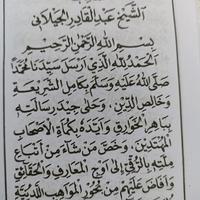 الشَّيْخ عَبْدِ الْقَادِرِ الْجِيْلَانِي
بِسْمِ اللهِ الرَّحْمٰنِ الرَّحِيْمِ
الْحَمْدُ لِلّٰهِ الَّذِي أَرْسَلَ سَيِّدَنَا مُحَمَّدًا
صَلَّى اللهُ عَلَيْهِ وَسَلَّمَ بِكَامِلِ الشَّرِيْعَةِ
وَخَالِصِ الدِّيْنِ، وَحَلَّى جِيْدَ رِسَالَتِهِ
بِبَاهِرِ الْخَوَارِقِ وَأَيَّدَهُ بِكُمَاةِ الْأَصْحَابِ
الْمُهْتَدِيْنَ، وَخَصَّ مَنْ شَاءَ مِنْ أَتْبَاعِ
مِلَّتِهِ بِالتَّرَقِّي إِلَى أَوْجِ الْمَعَارِفِ وَالْحَقَائِقِ
وَأَفَاضَ عَلَيْهِمْ مِنْ بُحُوْرِ الْمَوَاهِبِ اللَّدُنِّيَّةِ